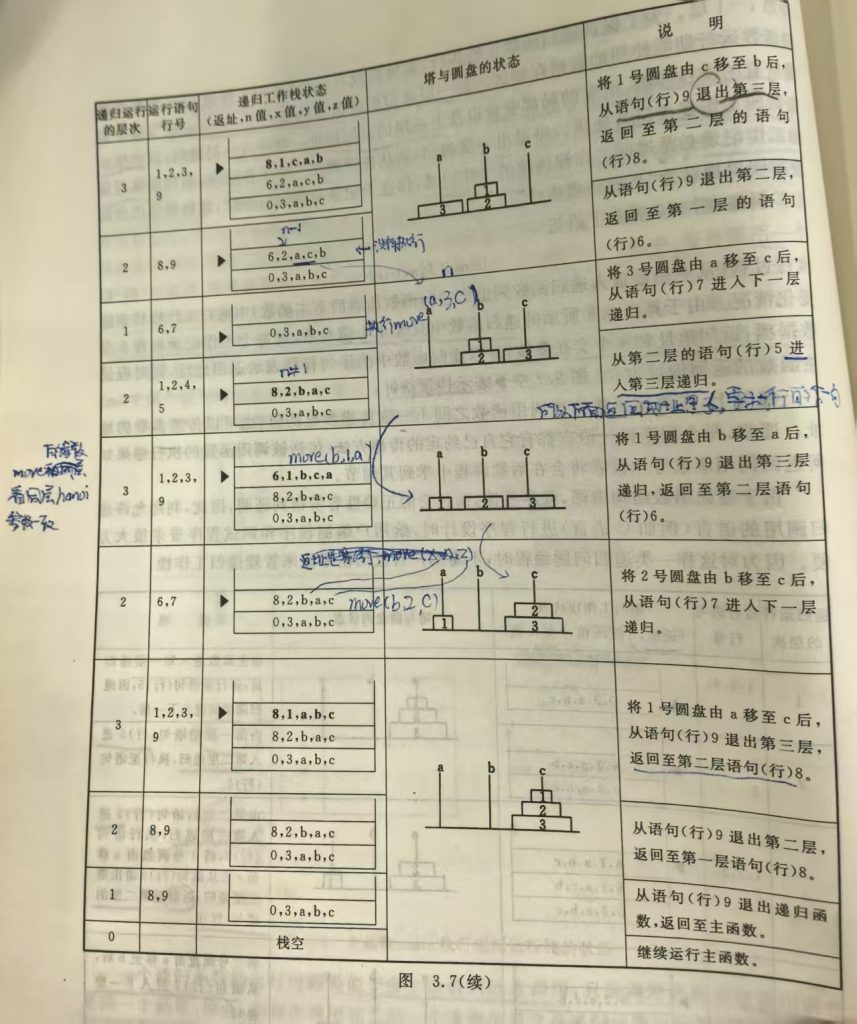 说 明
塔与圆盘的状态
递归工作栈状态
(返址,n值,x值,y值,z值)
递归运行
的层次
运行语句
行号
3
1,2,3,
9
8,1,c,a,b
6,2,a,c,b
0,3,a,b,c
a
b
c
1
2
3
将1号圆盘由c移至b后,
从语句(行)9退出第三层,
返回至第二层的语句
(行)8。
2
8,9
n-1
6,2,a,c,b
0,3,a,b,c
从语句(行)9退出第二层,
返回至第一层的语句
(行)6。
1
6,7
0,3,a,b,c
执行move
n
(a,3,C)
a
b
c
1
2
3
将3号圆盘由a移至c后,
从语句(行)7进入下一层
递归。
2
1,2,4,
5
8,2,b,a,c
0,3,a,b,c
从第二层的语句(行)5进
入第三层递归。
3
1,2,3,
9
move(b,1,a)
6,1,b,c,a
8,2,b,a,c
0,3,a,b,c
a
b
c
1
2
3
将1号圆盘由b移至a后,
从语句(行)9退出第三层
递归,返回至第二层语句
(行)6。
2
6,7
8,2,b,a,c
0,3,a,b,c
move(b,2,C)
a
b
c
1
2
3
将2号圆盘由b移至c后,
从语句(行)7进入下一层
递归。
3
1,2,3,
9
8,1,a,b,c
8,2,b,a,c
0,3,a,b,c
a
b
c
1
2
3
将1号圆盘由a移至c后,
从语句(行)9退出第三层,
返回至第二层语句(行)8。
2
8,9
8,2,b,a,c
0,3,a,b,c
从语句(行)9退出第二层,
返回至第一层语句(行)8。
1
8,9
0,3,a,b,c
从语句(行)9退出递归函
数,返回至主函数。
0
栈空
继续运行主函数。
图 3.7(续)